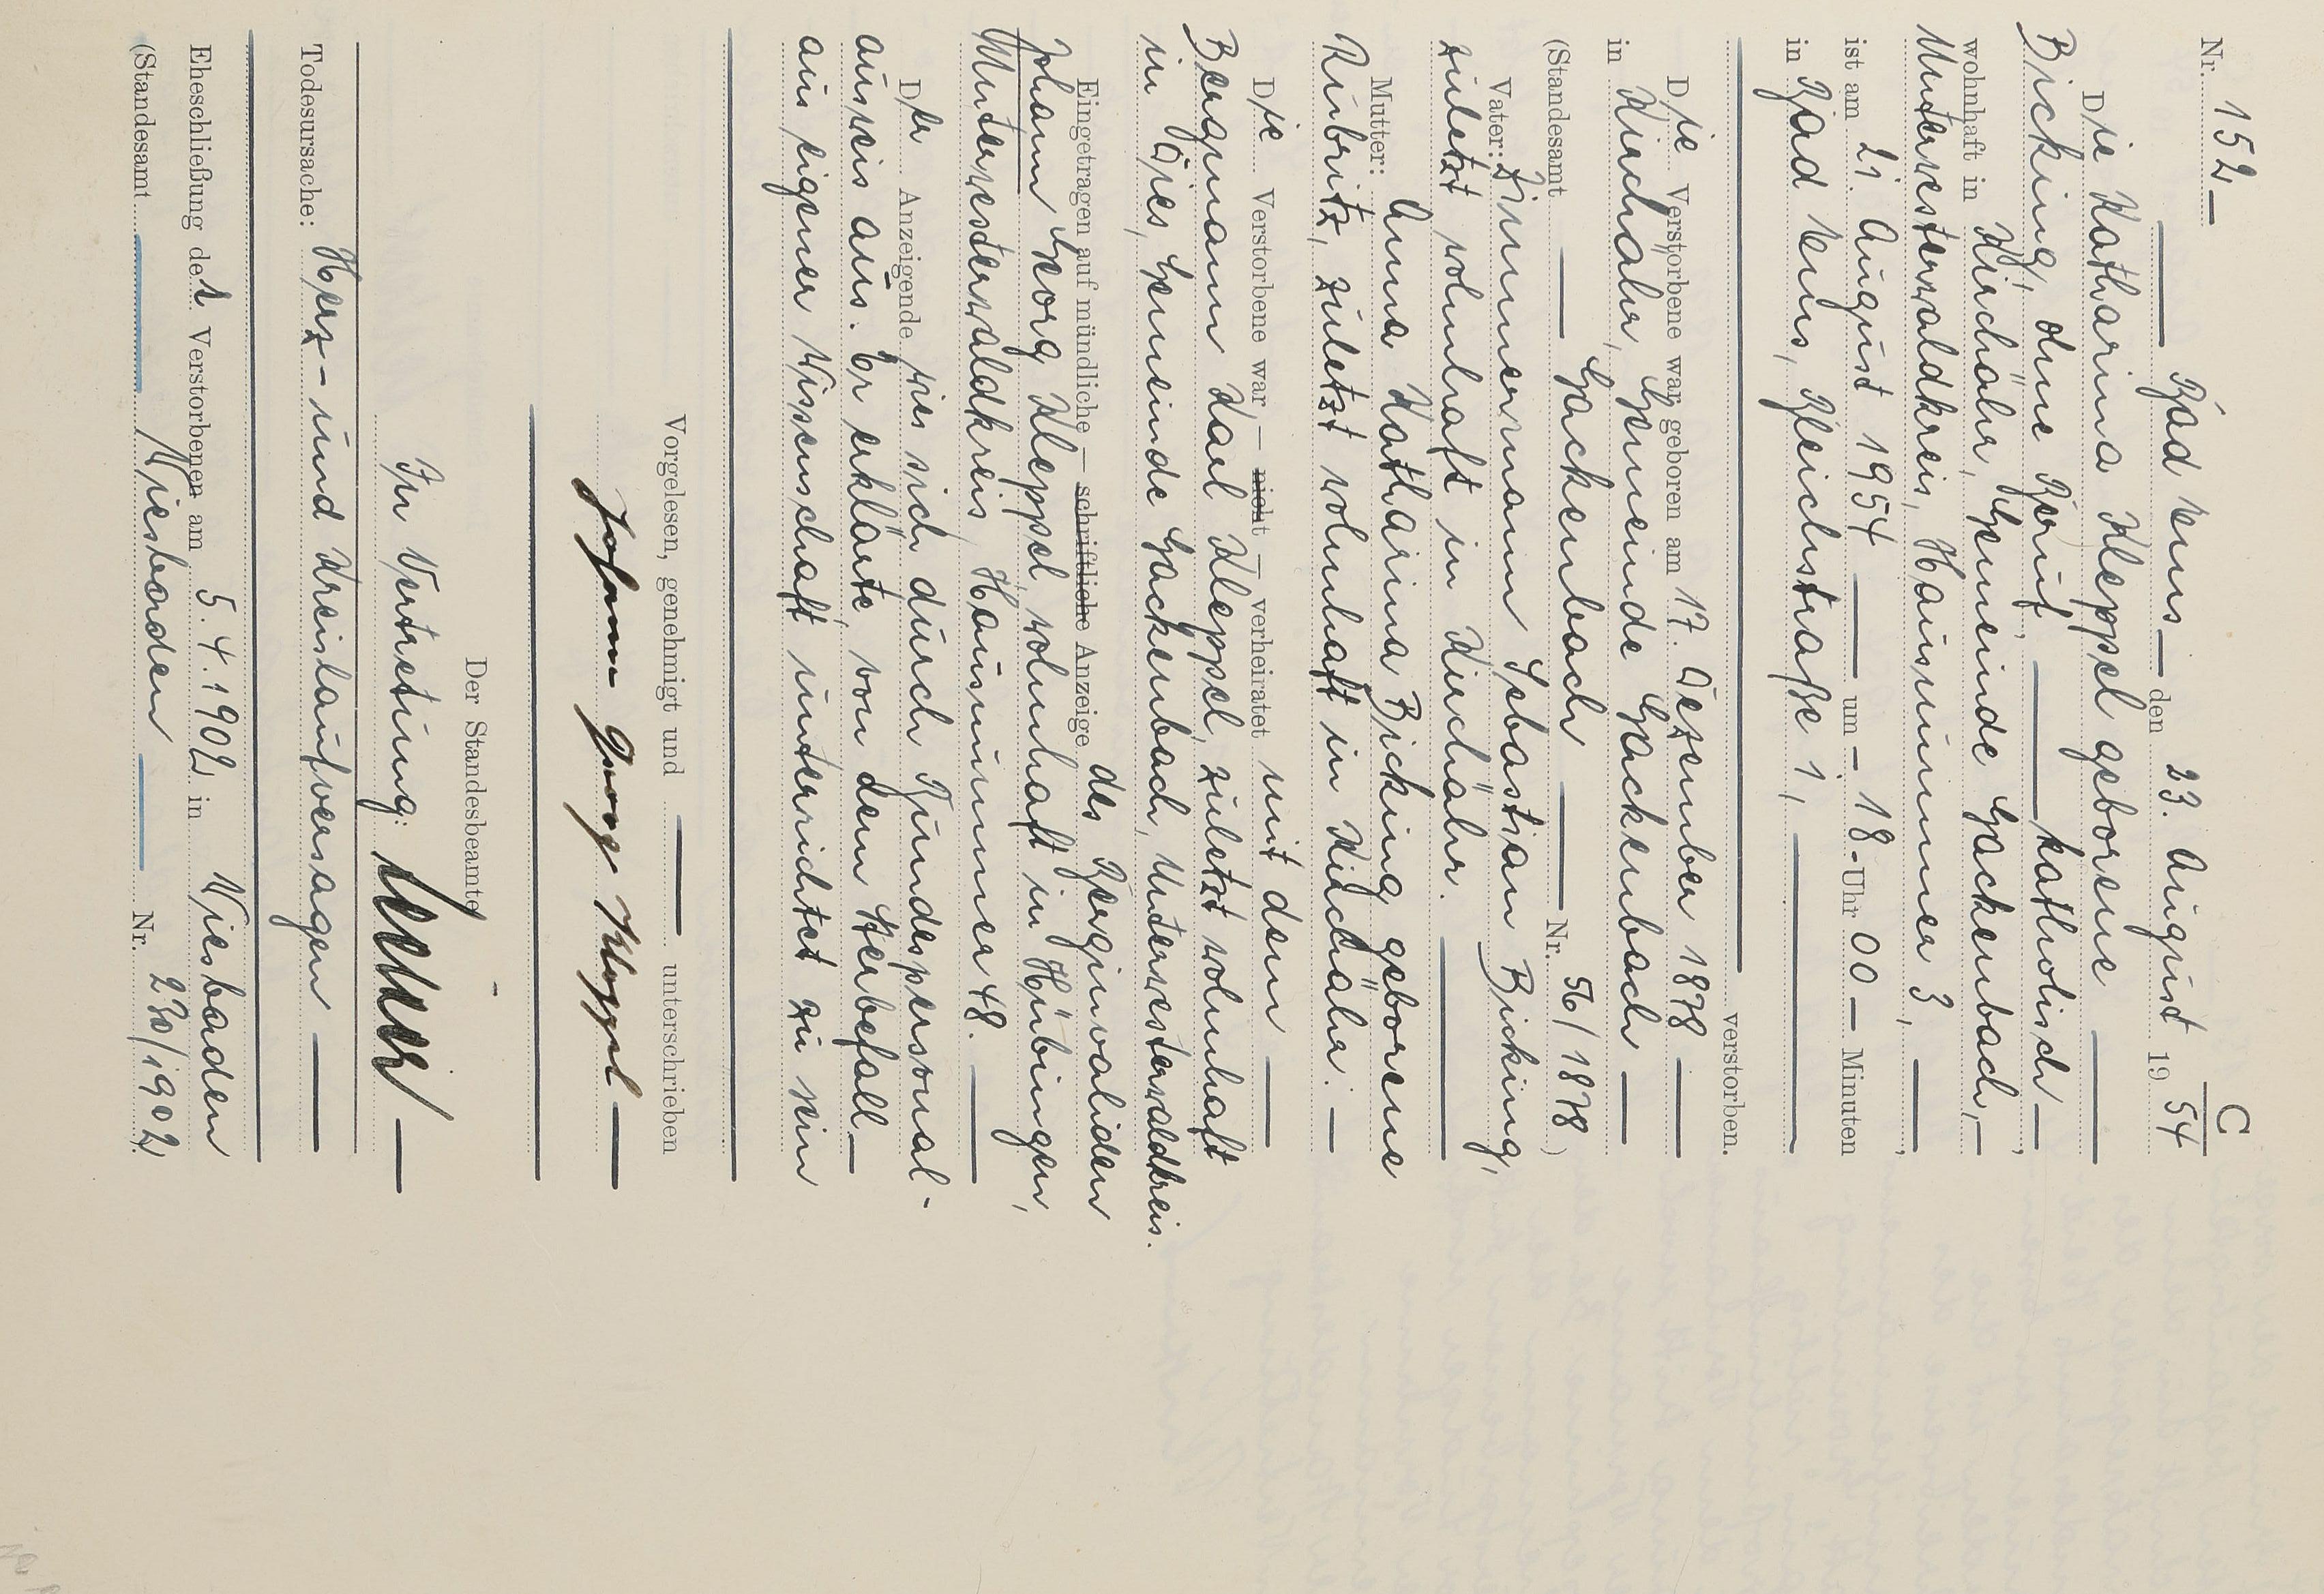 C
Nr. 152
Bad Ems den 23. August 1954
Die Katharina Kleppel geborene
Bicking, ohne Beruf, katholisch,
wohnhaft in Kirchähr, Gemeinde Gackenbach,
Unterwesterwaldkreis, Hausnummer 3,
ist am 21. August 1954 um 18 Uhr 00 Minuten
in Bad Ems, Bleichstraße 1,
verstorben.
Die Verstorbene war geboren am 17. Dezember 1878
in Kirchähr, Gemeinde Gackenbach
(Standesamt Gackenbach Nr. 56/1878)
Vater: Zimmermann Sebastian Bicking,
zuletzt wohnhaft in Kirchähr.
Mutter: Anna Katharina Bicking geborene
zuletzt wohnhaft in Kirchähr.
Die Verstorbene war — nicht — verheiratet mit dem
Bergmann Karl Kleppel, zuletzt wohnhaft
in Dies, Gemeinde Gackenbach, Unterwesterwaldkreis.
Eingetragen auf mündliche — schriftliche Anzeige des Berginvaliden
Johann Georg Kleppel, wohnhaft in Hübingen,
Unterwesterwaldkreis, Hausnummer 48.
Der Anzeigende wies sich durch Bundespersonal-
ausweis aus. Er erklärte, von dem Sterbefall
aus eigener Wissenschaft unterrichtet zu sein
Vorgelesen, genehmigt und unterschrieben
Johann Georg Kleppel
Der Standesbeamte
In Vertretung:
Todesursache: Herz- und Kreislaufversagen
Eheschließung der Verstorbenen am 5.4.1902 in Wiesbaden
(Standesamt Wiesbaden Nr. 230/1902)